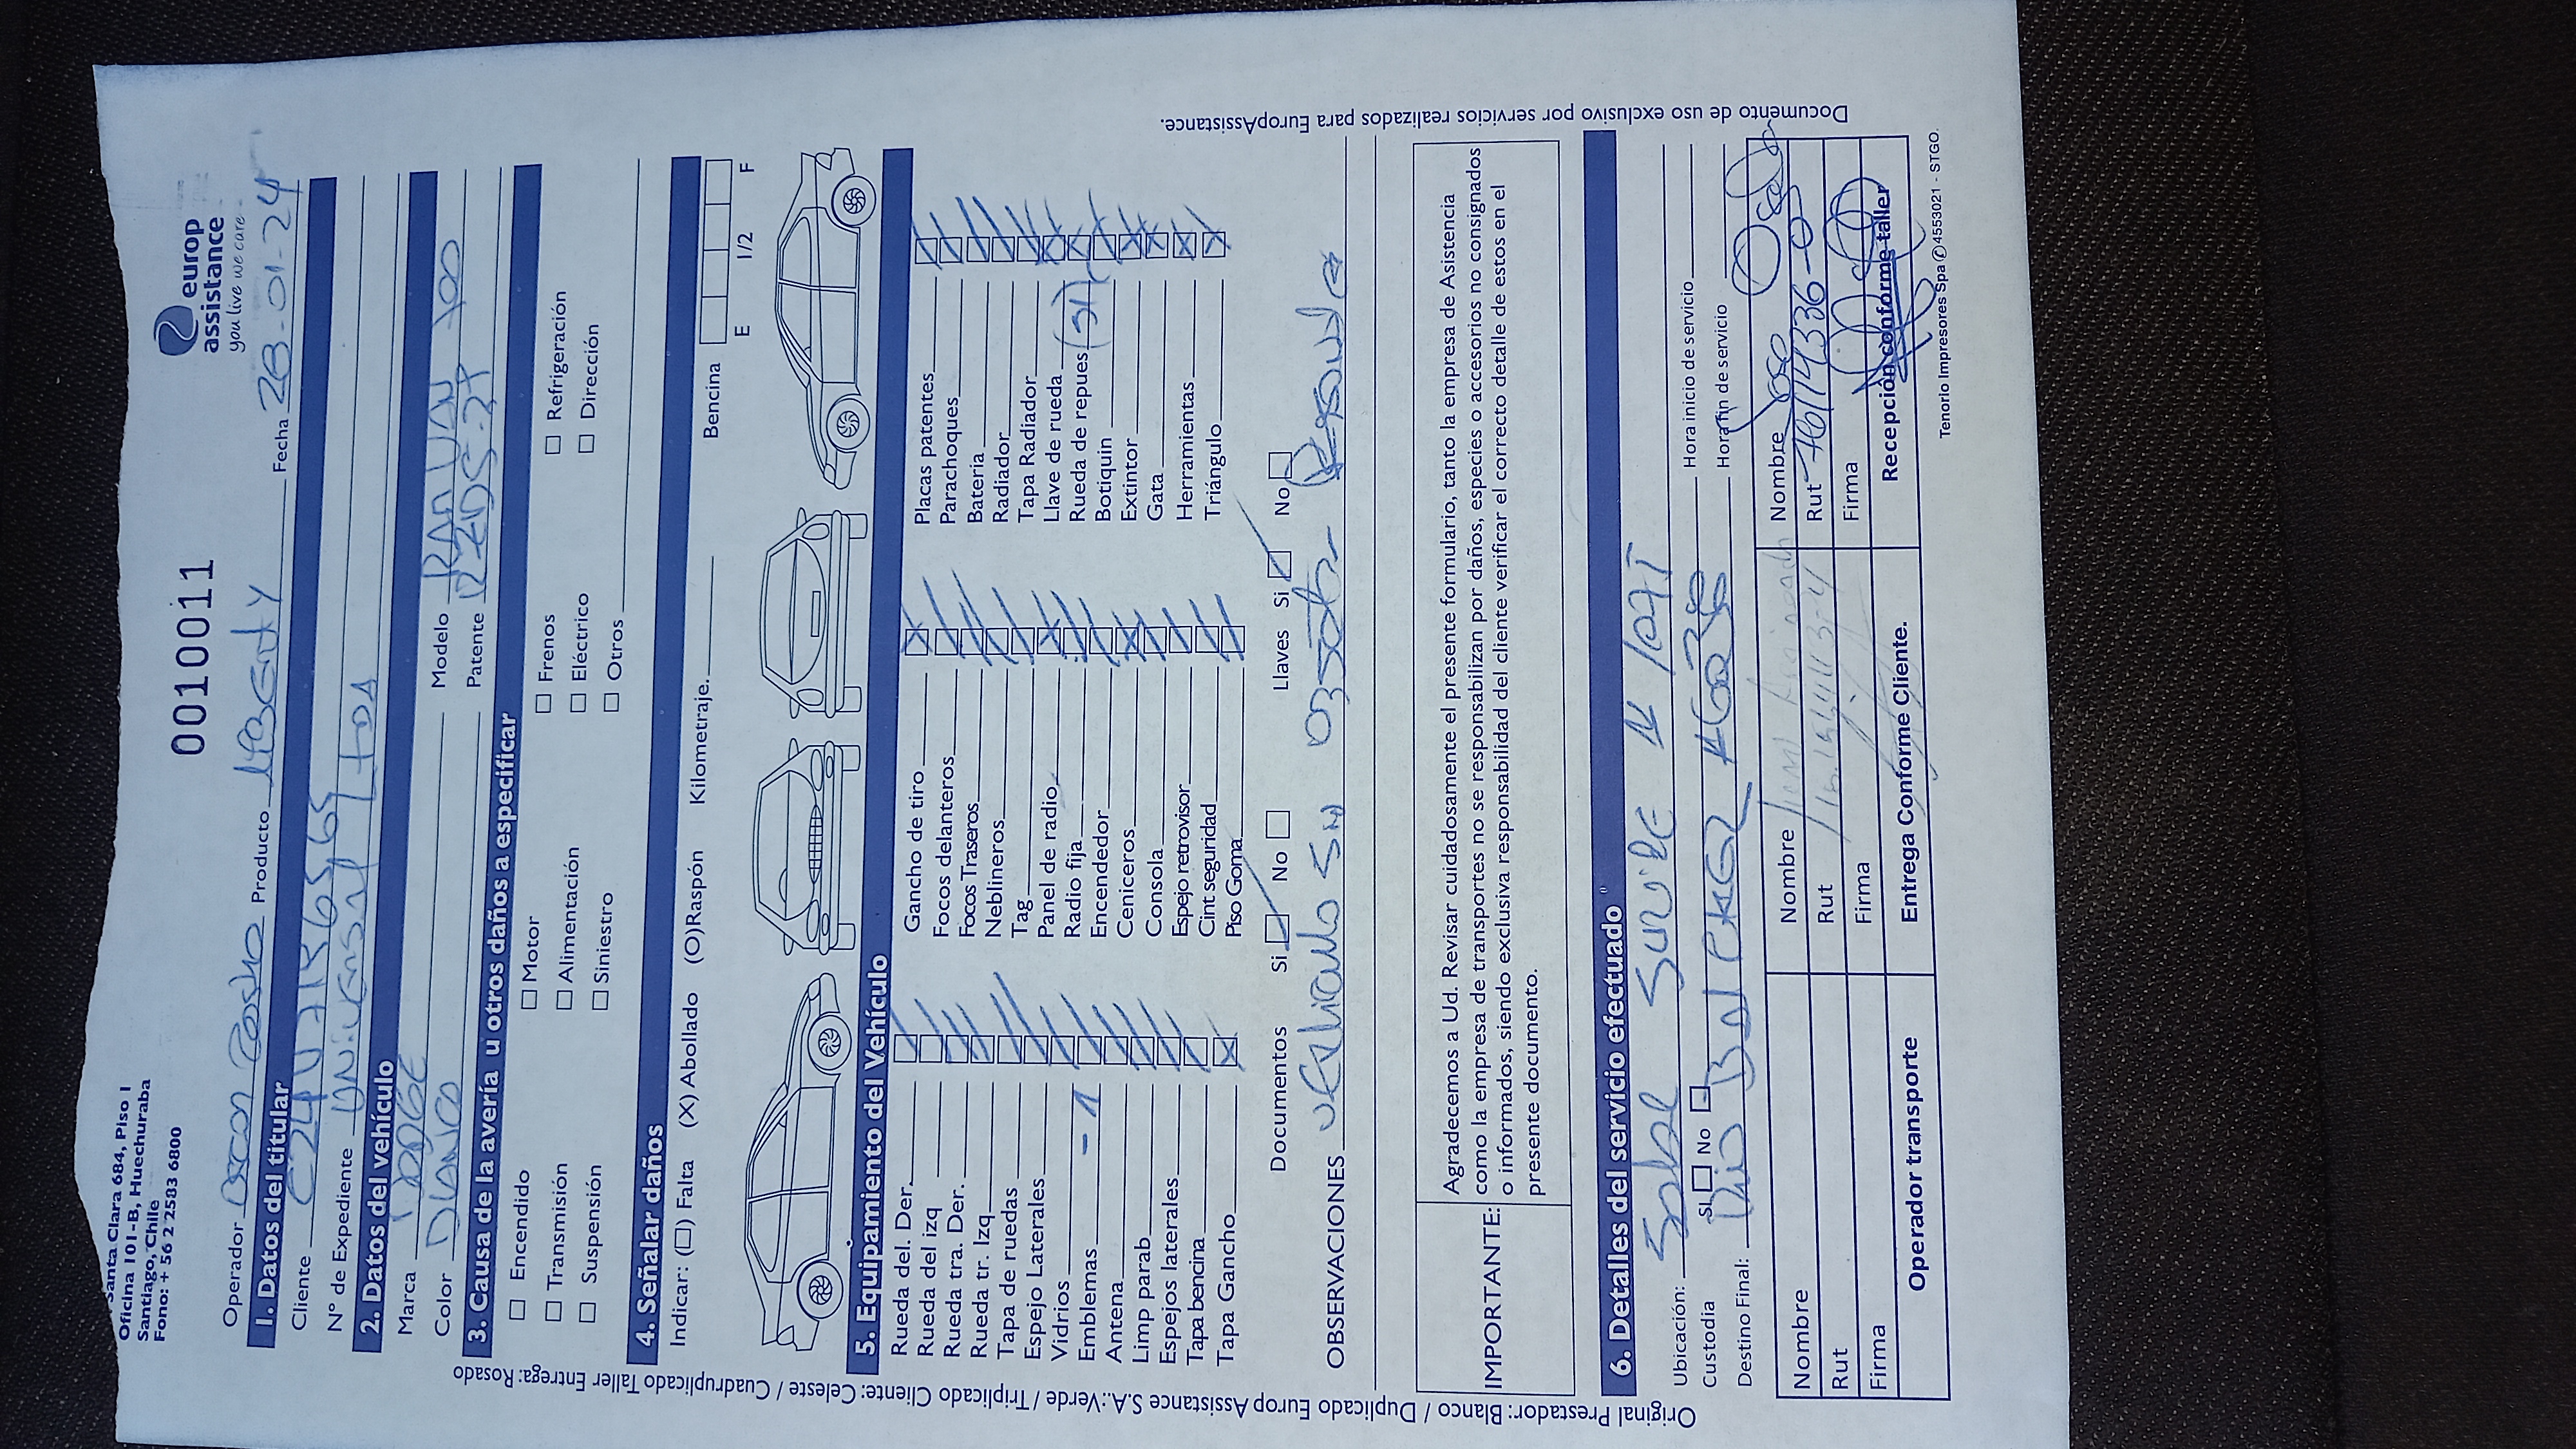 Santa Clara 684, Piso 1
Oficina 101 - B, Huechuraba
Santiago, Chile
Fono: + 56 2 2583 6800
europ
assistance
you live we care
0010011
Operador Oscar Producto Liberty Fecha 28-01-24
1. Datos del titular
Cliente
N° de Expediente Universal
2. Datos del vehículo
Marca DODGE Modelo RAM
Color Blanco Patente
3. Causa de la avería u otros daños a especificar
Encendido Motor Frenos Refrigeración
Transmisión Alimentación Eléctrico Dirección
Suspensión Siniestro Otros
4. Señalar daños
Indicar: (□) Falta (X) Abollado (O)Raspón Kilometraje. Bencina
E 1/2 F
5. Equipamiento del Vehículo
Rueda del. Der. Gancho de tiro Placas patentes
Rueda del izq Focos delanteros Parachoques
Rueda tra. Der. Focos Traseros Batería
Rueda tr. Izq Neblineros Radiador
Tapa de ruedas Tag Tapa Radiador
Espejo Laterales Panel de radio Llave de rueda
Vidrios Radio fija Rueda de repues (SI)
Emblemas - 1 Encendedor Botiquin
Antena Ceniceros Extintor
Limp parab Consola Gata
Espejos laterales Espejo retrovisor Herramientas
Tapa bencina Cint seguridad Triángulo
Tapa Gancho Piso Goma
Documentos Si No Llaves Si No
OBSERVACIONES Vehiculo Sin
IMPORTANTE:
Agradecemos a Ud. Revisar cuidadosamente el presente formulario, tanto la empresa de Asistencia
como la empresa de transportes no se responsabilizan por daños, especies o accesorios no consignados
o informados, siendo exclusiva responsabilidad del cliente verificar el correcto detalle de estos en el
presente documento.
6. Detalles del servicio efectuado
Ubicación:
Custodia SI No Hora inicio de servicio
Destino Final: Hora fin de servicio
Nombre Nombre Nombre Jose
Rut Rut Rut
Firma Firma Firma
Operador transporte Entrega Conforme Cliente. Recepción conforme taller
Tenorio Impresores Spa ✆4553021 - STGO.
Original Prestador: Blanco / Duplicado Europ Assistance S.A.:Verde / Triplicado Cliente: Celeste / Cuadruplicado Taller Entrega: Rosado
Documento de uso exclusivo por servicios realizados para EuropAssistance.